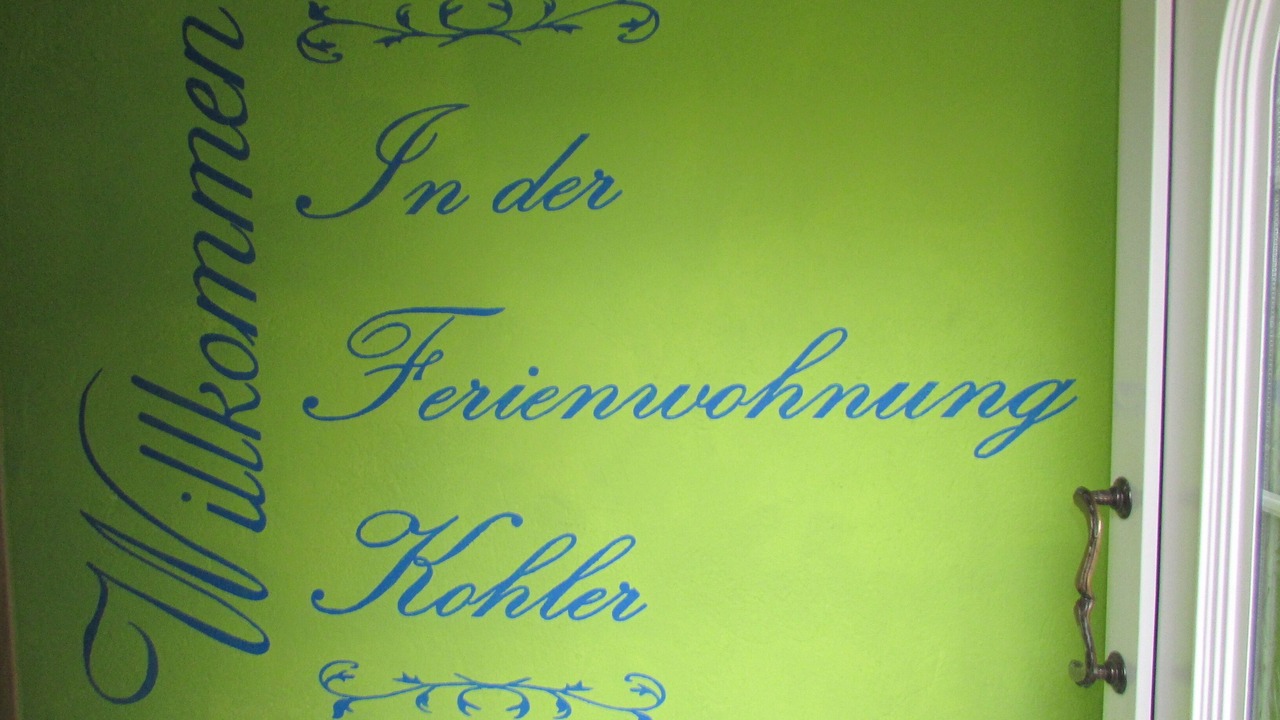 Willkommen
In der
Ferienwohnung
Kohler